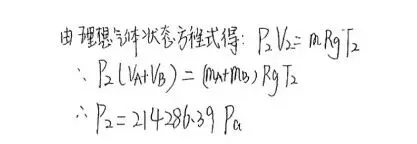 由理想气体状态方程式得: P₂V₂=mRgT₂
∴ P₂(VA+VB)=(mA+mB)RgT₂
∴ P₂=214286.39 Pa